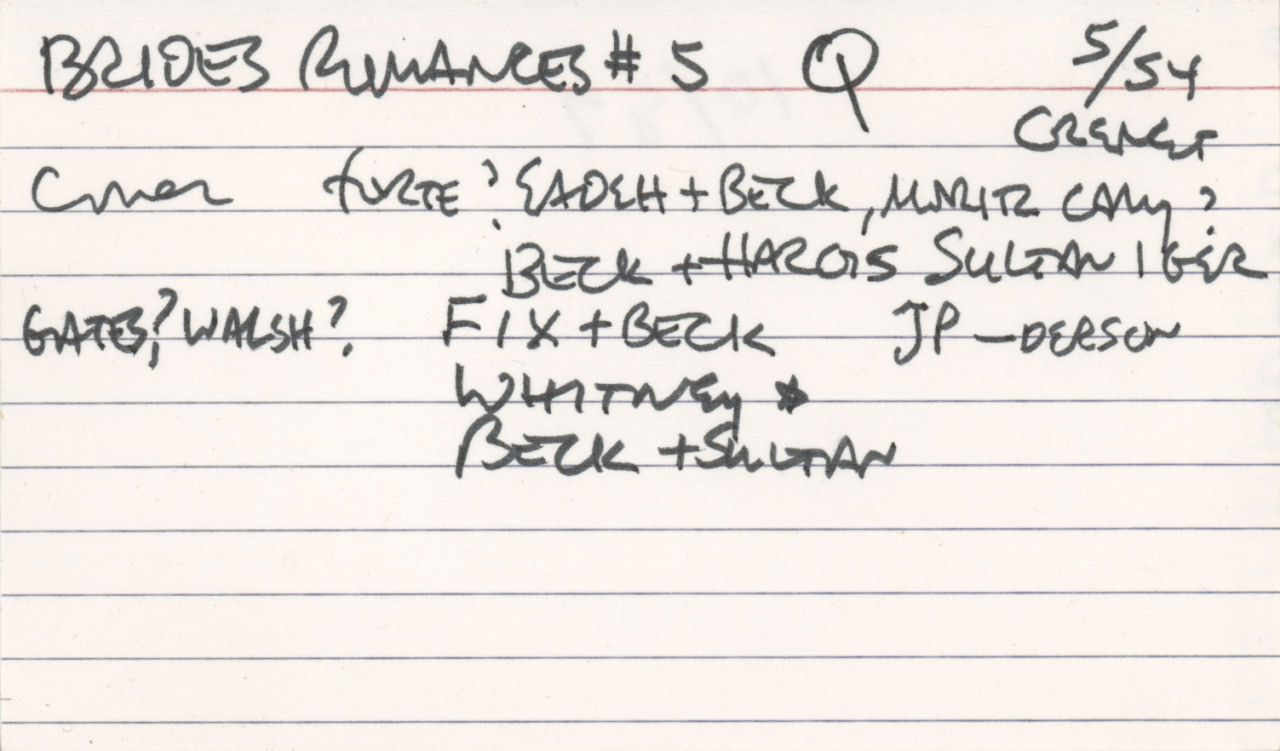 BRIDES ROMANCES # 5 Q 5/54
Cover forte? EADEH + BECK, MORITZ CAMY?
BECK + HARGIS SULTAN IGER
GATES?, WALSH? FIX + BECK JP -DERSON
WHITNEY
BECK + SULTAN